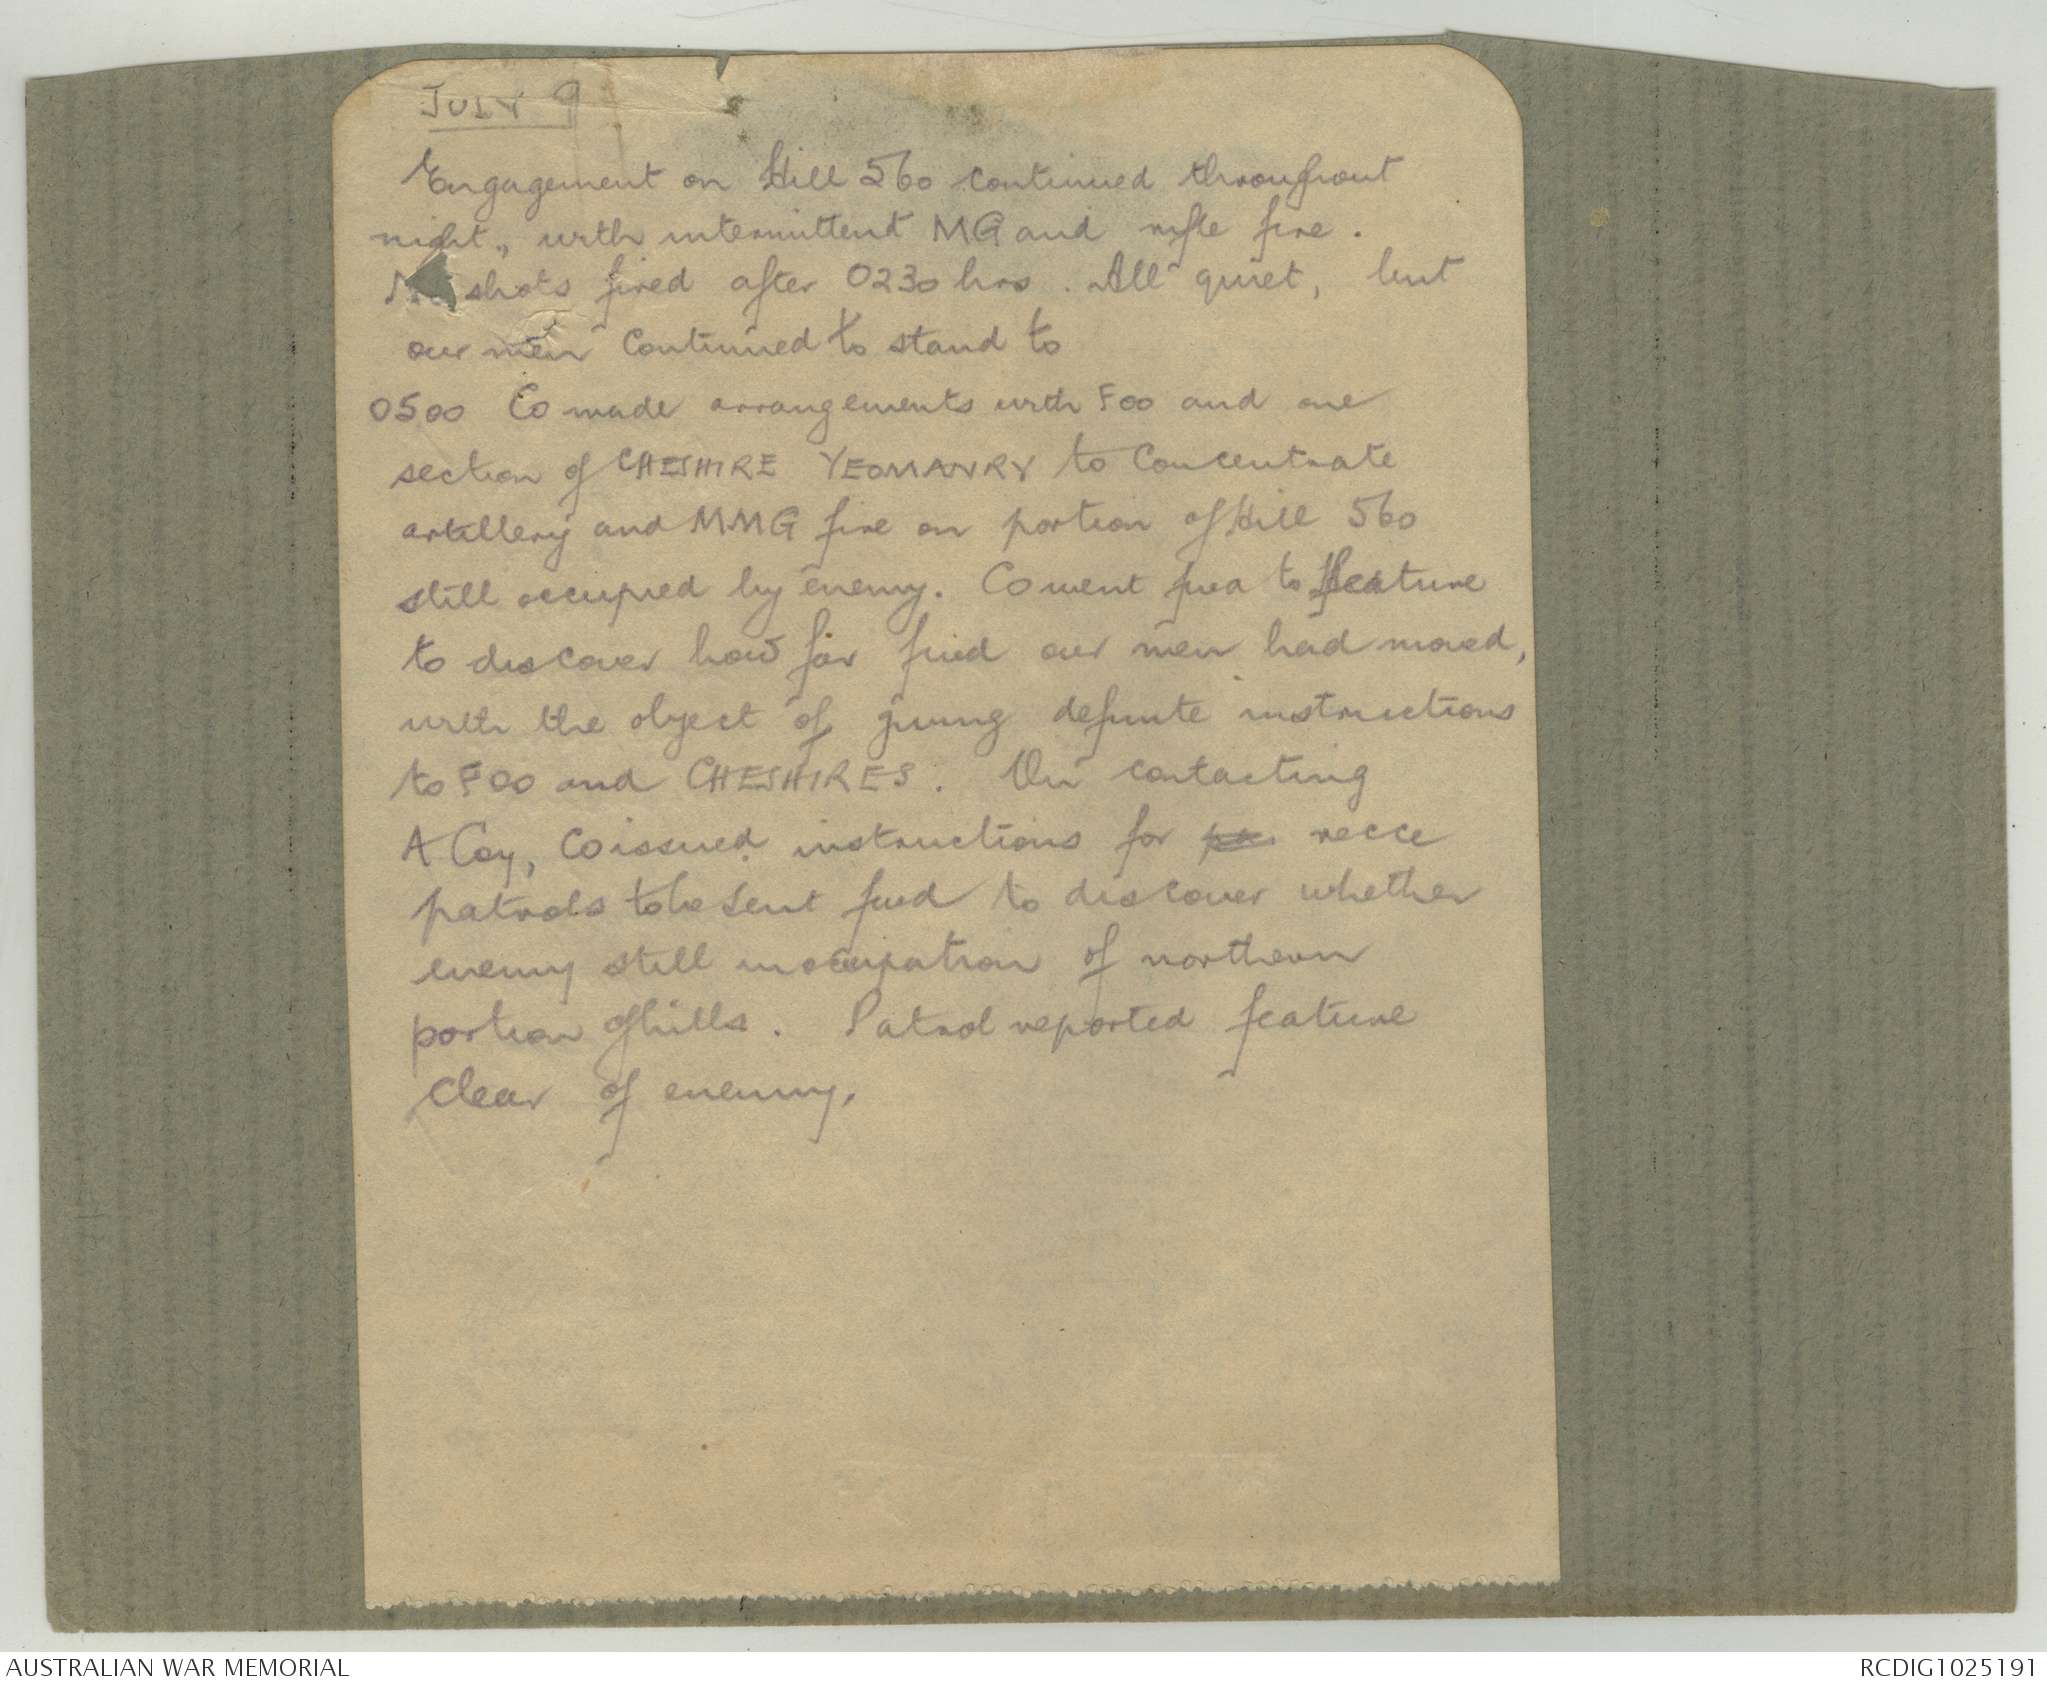 JULY 9
Engagement on Hill 560 continued throughout
night., with intermittent MG and rifle fire.
No shots fired after 0230 hrs. All quiet, but
our men continued to stand to
0500 CO made arrangements with FOO and one
section of CHESHIRE YEOMANRY to concentrate
artillery and MMG fire on portion of Hill 560
still occupied by enemy. CO went fwd to feature
to discover how far fwd our men had moved,
with the object of giving definite instructions
to FOO and CHESHIRES. On contacting
A Coy, CO issued instructions for recce
patrols to be sent fwd to discover whether
enemy still in occupation of northern
portion of hills. Patrol reported feature
clear of enemy.
AUSTRALIAN WAR MEMORIAL
RCDIG1025191